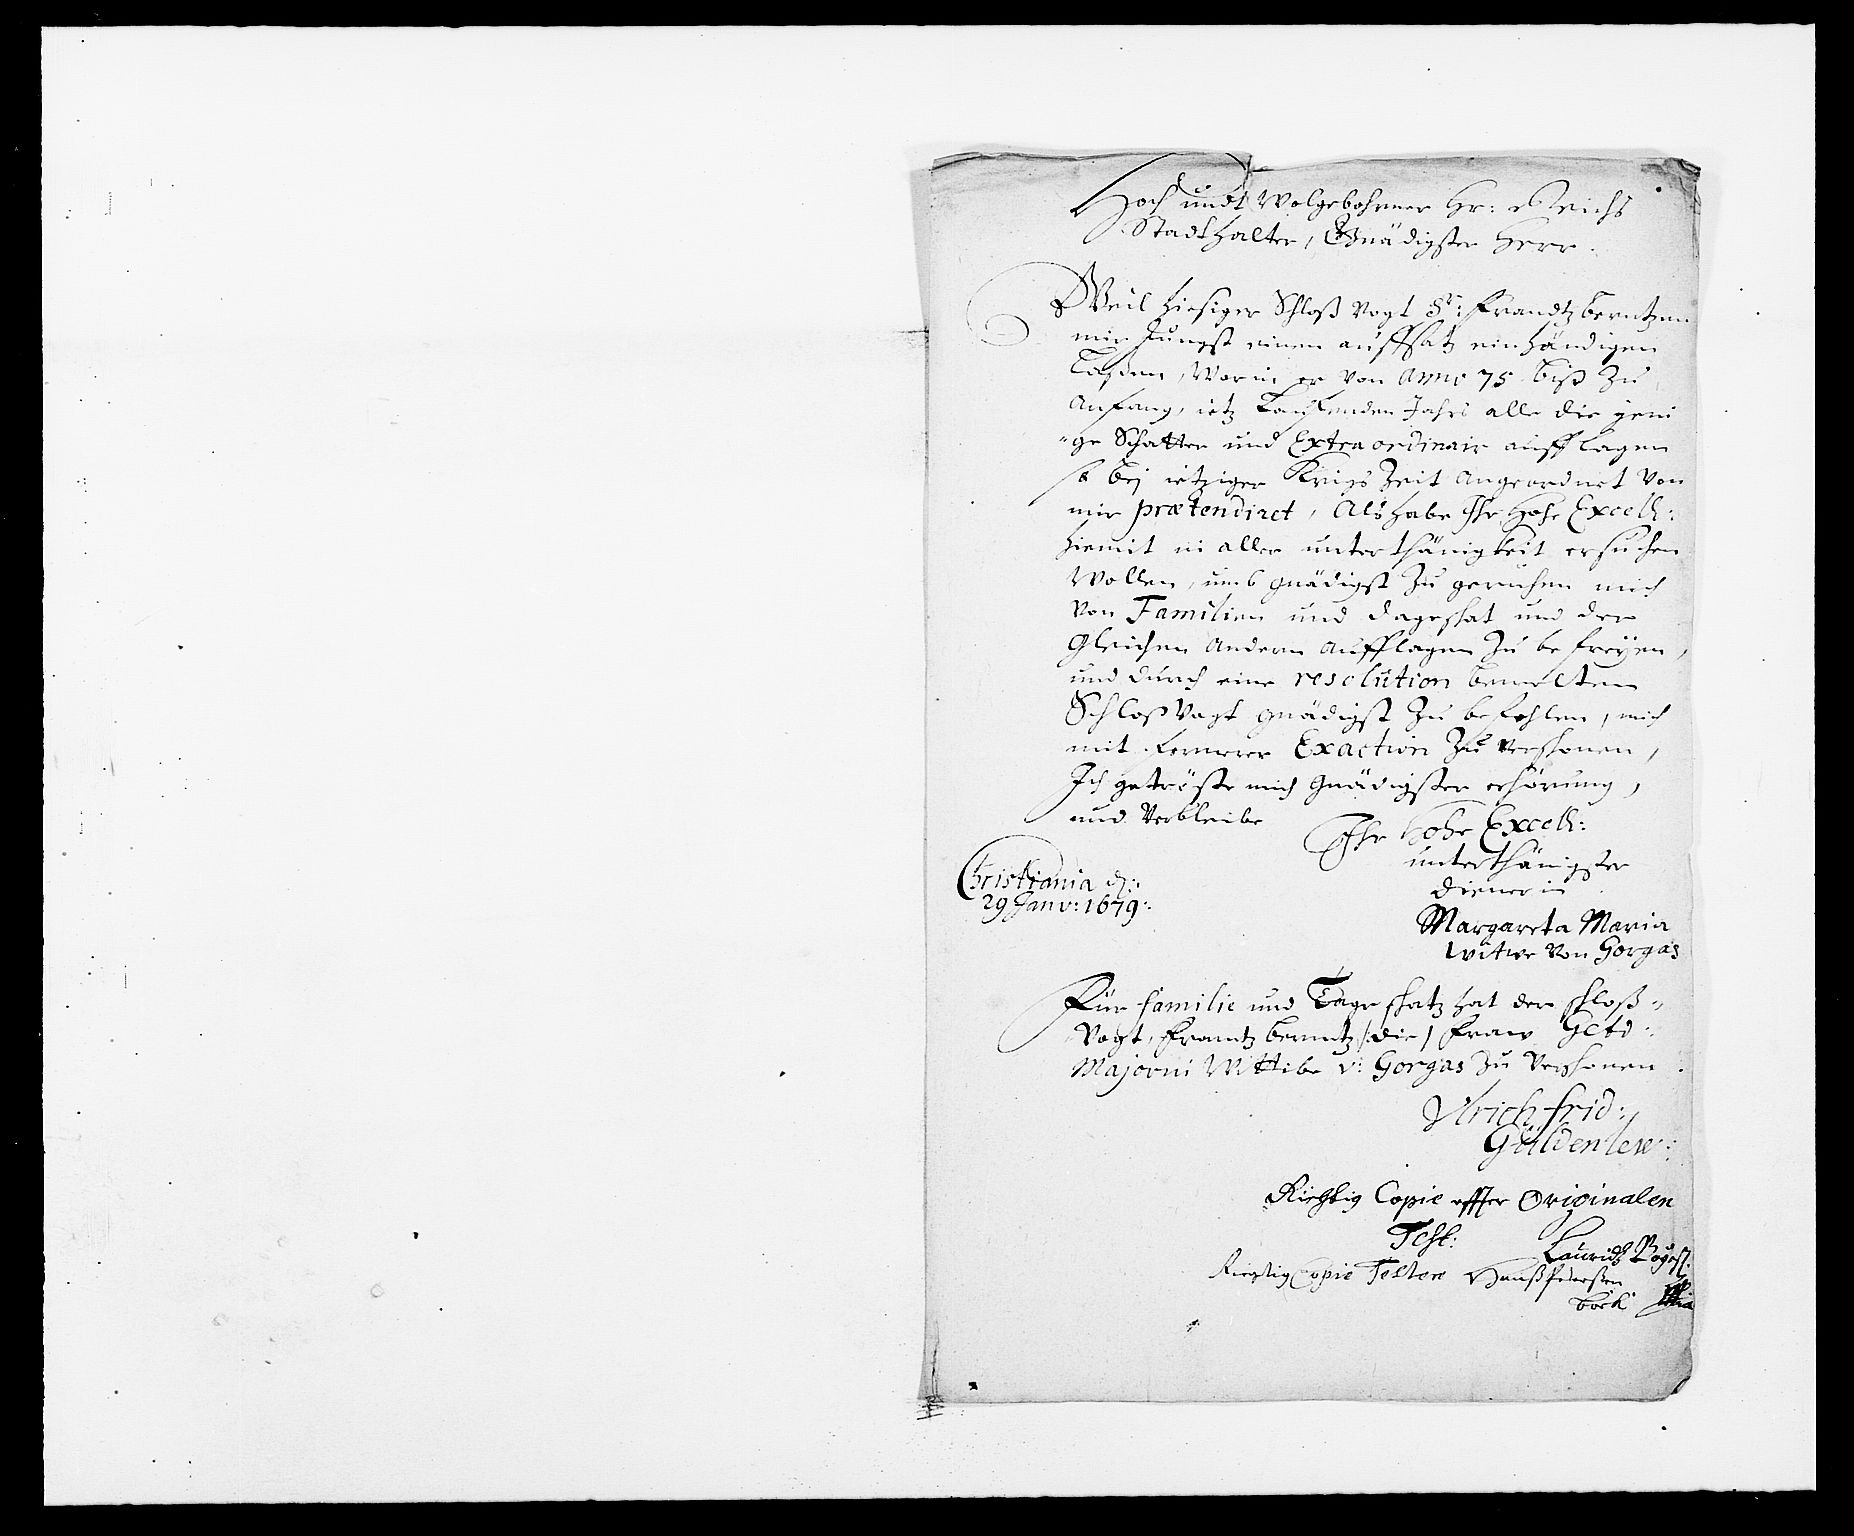 Hoch undt Wolgebohrner Hr: Reichs
Stadthalter, Gnädigster Herr.
Weil hiesiger Schloß Vogt Sr: Frandtz berntzen
mir Jüngst einen auffsatz einhändigen
Laßen, Worin er von Anno 75 biß Zu
Anfang, ietz Lauffenden Jahrs alle die yeni
"ge Schatter und Extraordinair aufflagen
so bej ietziger Krigs Zeit angeordnet von
mir prætendiret, Als habe Ihr Hohe Excell:
hiemit in aller unterthänigkeit ersuchen
Wollen, umb gnädigst Zu geruhen mich
von Familien und dageshat und der
gleichen andern aufflagen Zu befreyen,
und durch eine resolution bemelten
Schloß Vagt gnädigst Zu befehlen, mich
mit fernerer Exaction Zu vershonen,
Ich getröste mich Gnädigster erhörung,
und Verbleibe
Ihr Hohe Excell:
unterthänigster
dienerin
Christiania d:
29 Janv: 1679:
Margareta Maria
witwe von Gorgas
Für familie und Tage shatz hat der shloß-
Vogt, Frantz berntz /die/ Fraw
Majorin Wittibe v: Gorgas Zu Vershonen
Ulrich frid:
Güldenlew:
Richtig Copie effter Originalen
Test:
Lauridtz
Rigtig Copie Testere Hanß Pederßen